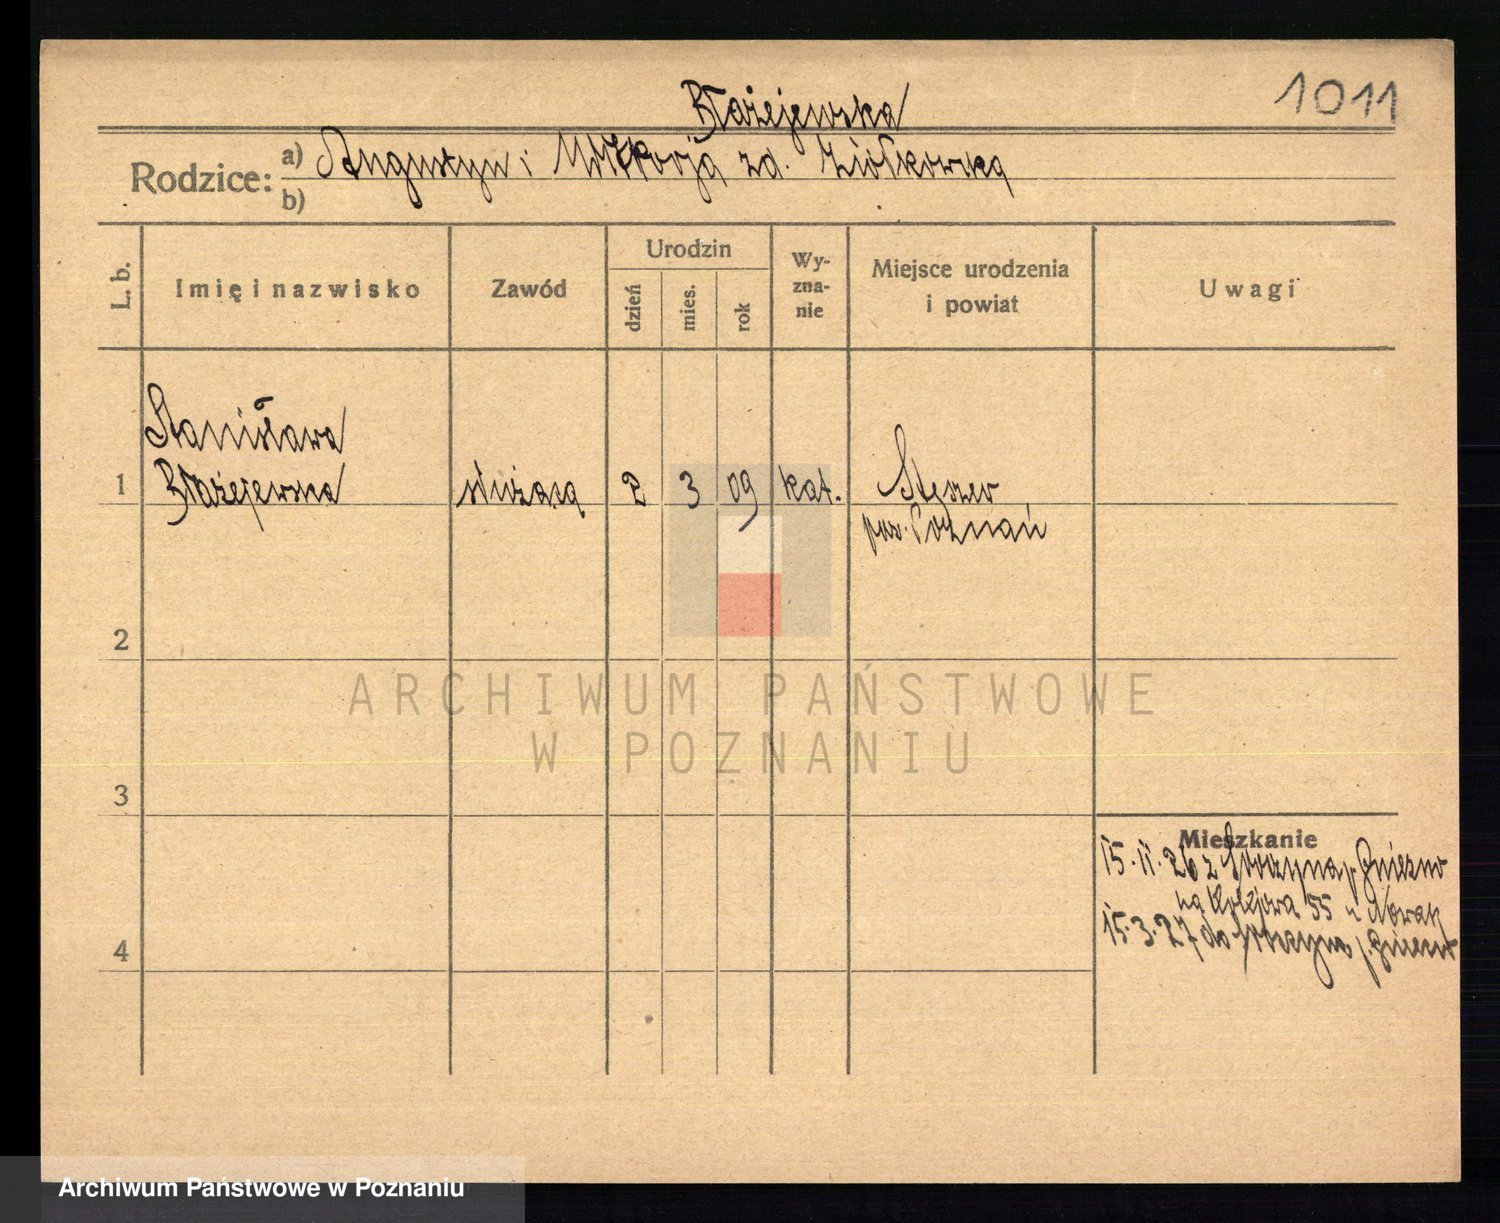 1011
Błażejewska
Rodzice:
a) Augustyn i zd. Ziółkowska
b)
L. b.
Imię i nazwisko
Zawód
Urodzin
dzień
mies.
rok
Wy-
zna-
nie
Miejsce urodzenia
i powiat
Uwagi
Stanisława
1 Błażejewska służąca 2 3 09 kat. Stęszew
pow. Poznań
2
ARCHIWUM PAŃSTWOWE
W POZNANIU
3
Mieszkanie
15.11.26 z p. Gniezno
na Kolejowa 55 u Nowak
15.3.27 do p. Gniezno
4
Archiwum Państwowe w Poznaniu